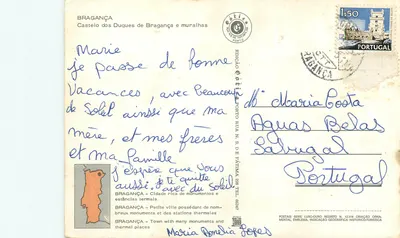 BRAGANÇA
Castelo dos Duques de Bragança e muralhas
Marie
je passe de bonne
vacances, avec Beaucoup
de Soleil ainsi que ma
mère, et mes frères
et ma famille
j'espère que vous
aussi, je te quitte
avec du Soleil
BRAGANÇA – Cidade rica de monumentos e
essências vernais
BRAGANÇA – Petite ville possédant de nom-
breux monuments et des stations thermales
BRAGANÇA – Town with many monuments and
thermal places
Maria Lopes
1$50
PORTUGAL
BRAGANÇA
Mª Maria Costa
Aguas Belas
Sabugal
Portugal